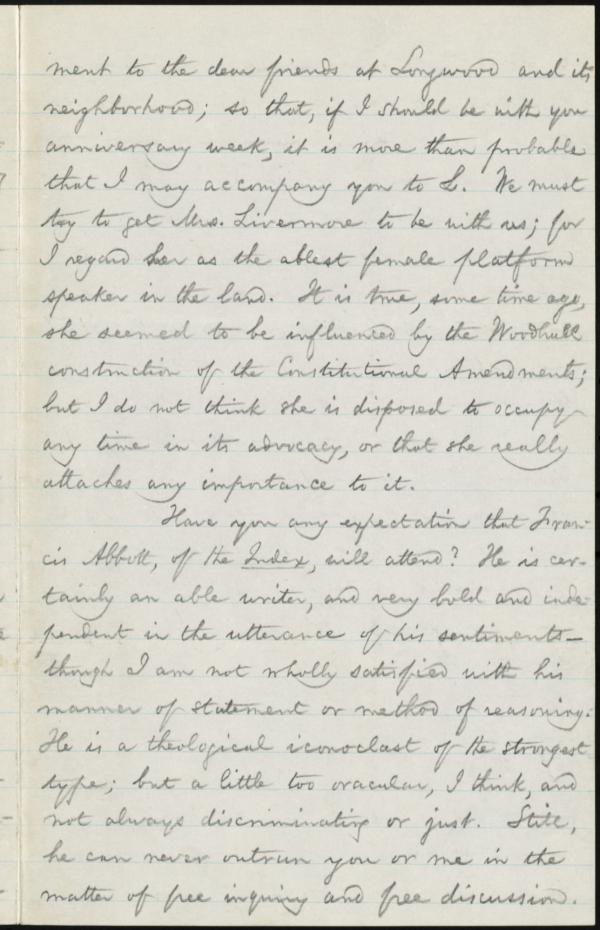 ment to the dear friends at Longwood and its
neighborhood; so that, if I should be with you
anniversary week, it is more than probable
that I may accompany you to L. We must
try to get Mrs. Livermore to be with us; for
I regard her as the ablest female platform
speaker in the land. It is true, some time ago,
she seemed to be influenced by the Woodhull
construction of the Constitutional Amendments;
but I do not think she is disposed to occupy
any time in its advocacy, or that she really
attaches any importance to it.
Have you any expectation that Fran-
cis Abbott, of the Index, will attend? He is cer-
tainly an able writer, and very bold and inde-
pendent in the utterance of his sentiments—
though I am not wholly satisfied with his
manner of statement or method of reasoning.
He is a theological iconoclast of the strongest
type; but a little too oracular, I think, and
not always discriminating or just. Still,
he can never outrun you or me in the
matter of free inquiry and free discussion.